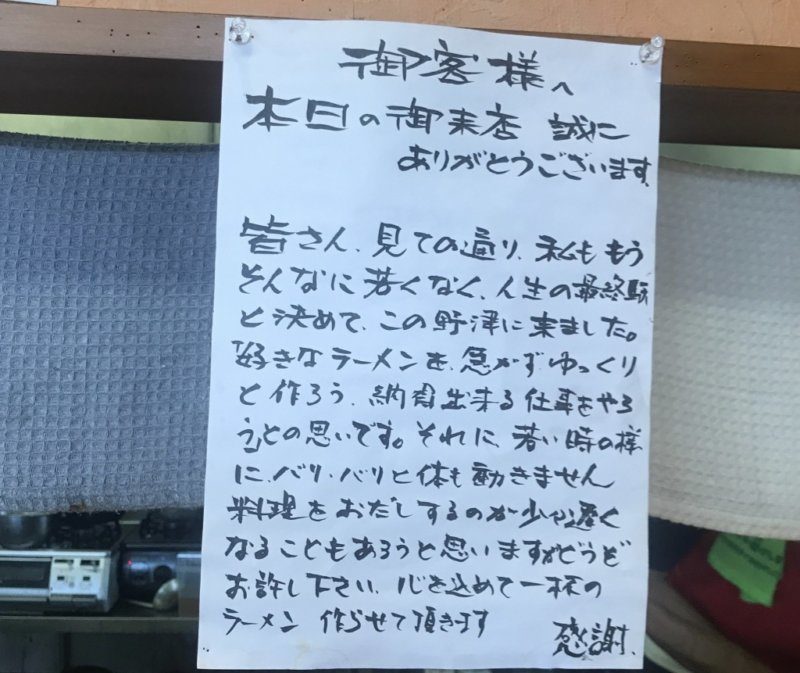 御客様へ
本日の御来店 誠に
ありがとうございます。
皆さん、見ての通り、私ももう
そんなに若くなく、人生の最終駅
と決めて、この野津に来ました。
「好きなラーメンを、急がずゆっくり
と作ろう、納得出来る仕事をやろ
う」との思いです。それに、若い時の様
に、バリ・バリと体も動きません
料理をおだしするのが少々遅く
なることもあろうと思いますがどうぞ
お許し下さい、心を込めて一杯の
ラーメン 作らせて頂きます
感謝、